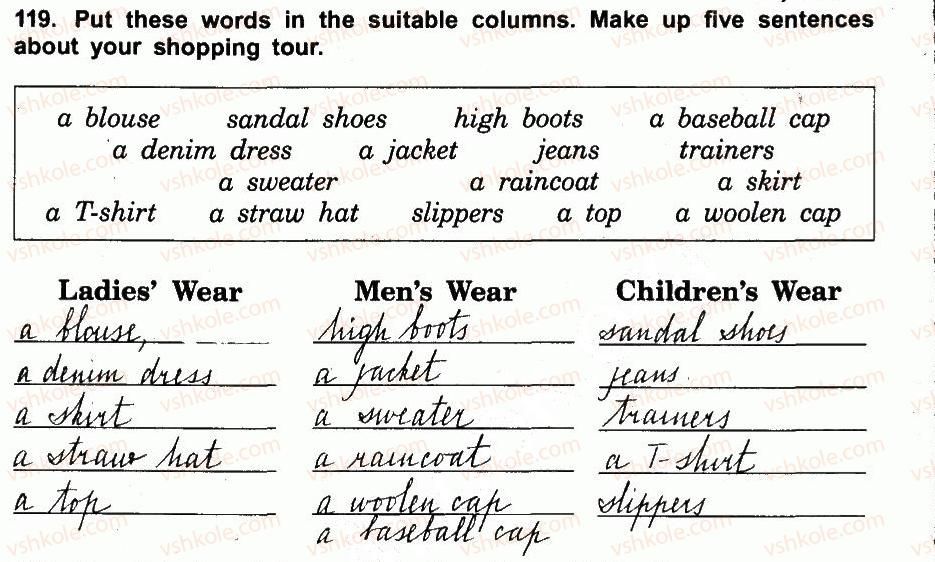 119. Put these words in the suitable columns. Make up five sentences
about your shopping tour.
a blouse sandal shoes high boots a baseball cap
a denim dress a jacket jeans trainers
a sweater a raincoat a skirt
a T-shirt a straw hat slippers a top a woolen cap
Ladies' Wear Men's Wear Children's Wear
a blouse, high boots sandal shoes
a denim dress a jacket jeans
a skirt a sweater trainers
a straw hat a raincoat a T-shirt
a top a woolen cap slippers
a baseball cap